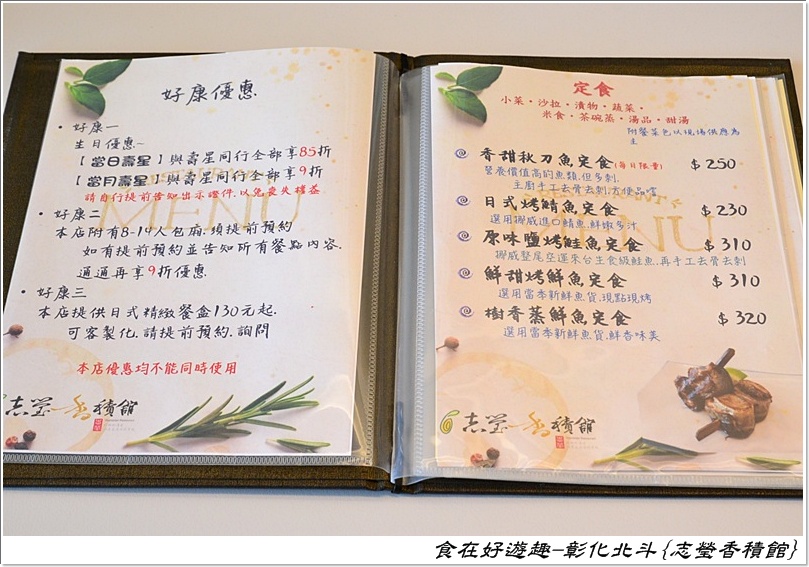 好康優惠
• 好康一
生日優惠~
【當日壽星】與壽星同行全部享85折
【當月壽星】與壽星同行全部享9折
請自行提前告知出示證件.以免喪失權益
• 好康二
本店附有8-14人包廂.須提前預約
如有提前預約並告知所有餐點內容.
通通再享9折優惠
• 好康三
本店提供日式精緻餐盒130元起.
可客製化.請提前預約.詢問
本店優惠均不能同時使用
MENU
志瑩香積館
定食
小菜·沙拉·漬物·蔬菜·
米食·茶碗蒸·湯品·甜湯
附餐菜色以現場供應為
主
香甜秋刀魚定食(每日限量) $250
營養價值高的魚類.但多刺.
主廚手工去骨去刺.方便品嚐
日式烤鯖魚定食 $230
選用挪威進口鯖魚.鮮嫩多汁
原味鹽烤鮭魚定食 $310
挪威整尾空運來台生食級鮭魚.再手工去骨去刺
鮮甜烤鮮魚定食 $310
選用當季新鮮魚貨.現點現烤
樹香蒸鮮魚定食 $320
選用當季新鮮魚貨.鮮香味美
志瑩香積館
食在好遊趣-彰化北斗{志瑩香積館}